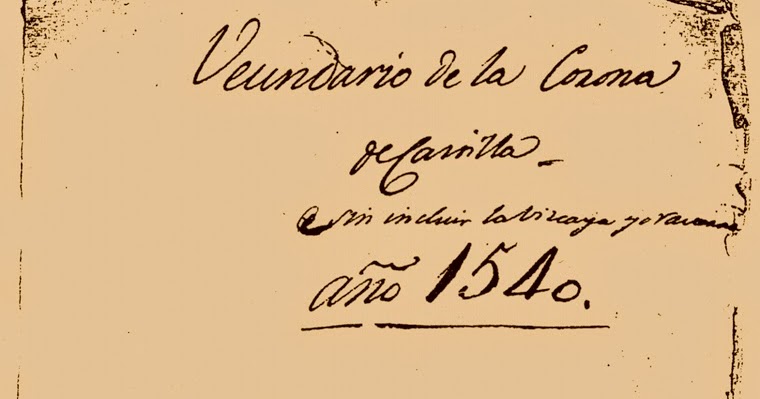 Vecundario de la Corona
de Castilla
sin incluir la Vizcaya y
año 1540.